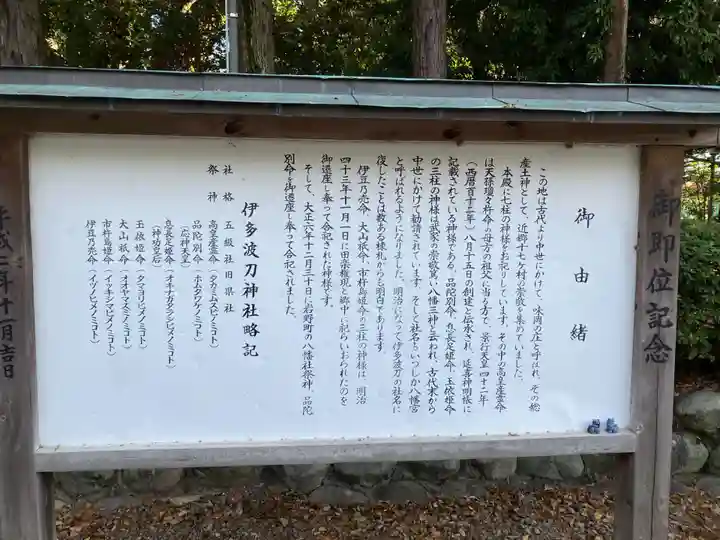 御即位記念
御由緒
この地は古代より中世にかけて、味岡の庄と呼ばれ、その総
産土神として、近郷十七ケ村の崇敬を集めていました。
本殿に七柱の神様をお祀りしています。その中の高皇産霊命
は天孫瓊々杵命の母方の祖父に当る方で、景行天皇四十二年
(西暦百十三年)八月十五日の創建と伝承され、延喜神明帳に
記載されている神様である。品陀別命、息長足姫命、玉依姫命
の三柱の神様は武家の崇敬篤い八幡三神と云われ、古代末から
中世にかけて勧請されています。そして社名もいつしか八幡宮
と呼ばれるようになりました。明治になって伊多波刀の社名に
復したことは数ある棟札からも明白であります。
伊豆乃売命、大山祇命、市杵島姫命の三社の神様は、明治
四十三年十一月一日に田楽権現と郷中に祀らいおられたのを
御遷座し奉って合祀された神様です。
そして、大正六年十二月三十日に岩野町の八幡社祭神、品陀
別命を御遷座し奉って合祀されました。
伊多波刀神社略記
社格 五級社旧県社
祭神 高皇産霊命(タカミムスビノミコト)
品陀別命(ホムタワケノミコト)
(応神天皇)
息長足姫命(オキナガタラシヒメノミコト)
(神功皇后)
玉依姫命(タマヨリヒメノミコト)
大山祇命(オオヤマズミノミコト)
市杵島姫命(イツキシマヒメノミコト)
伊豆乃売命(イヅノヒメノミコト)
平成二年十一月吉日